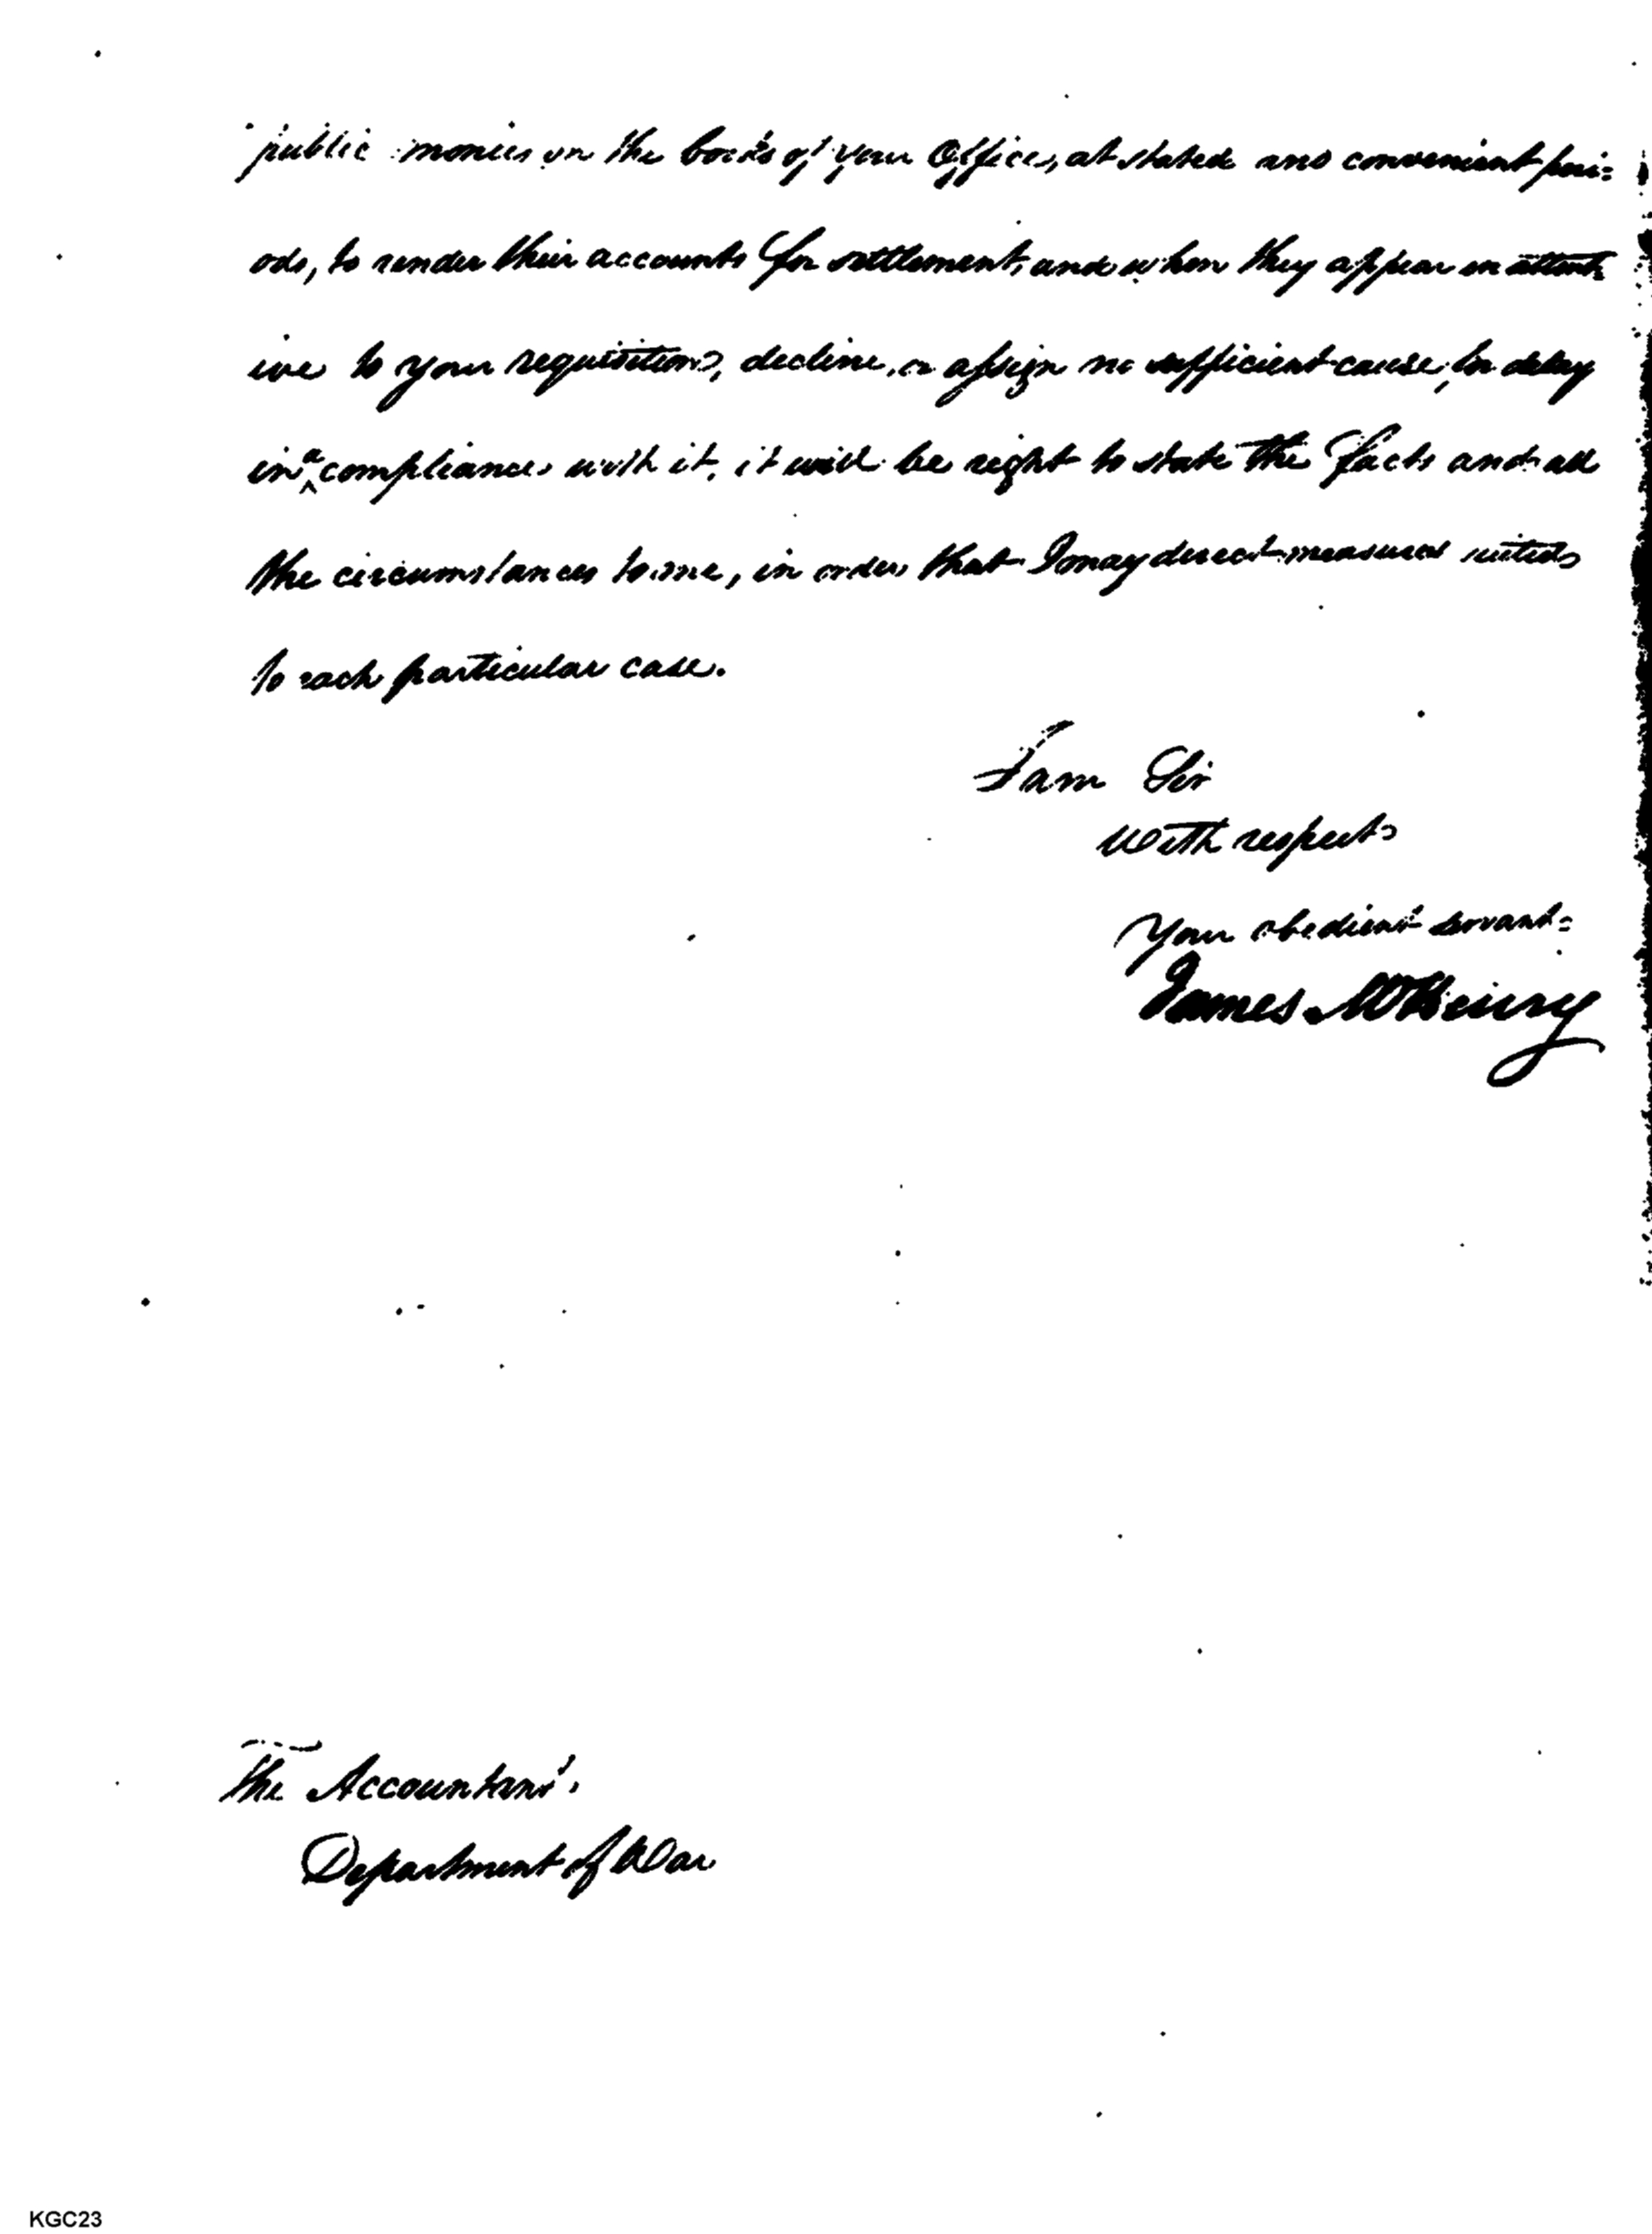 public monies on the books of your Office, at stated and convenient peri=
ods, to render their accounts for settlement, and when they appear in attent
ive to your requisitions, decline, or assign no sufficient cause, for delay
in a compliance with it, it will be right to state the facts and all
the circumstances to me, in order that I may direct measures suited
to each particular case.
I am Sir
with respect
Your obedient servant=
James McHenry
The Accountant,
Department of War
KGC23